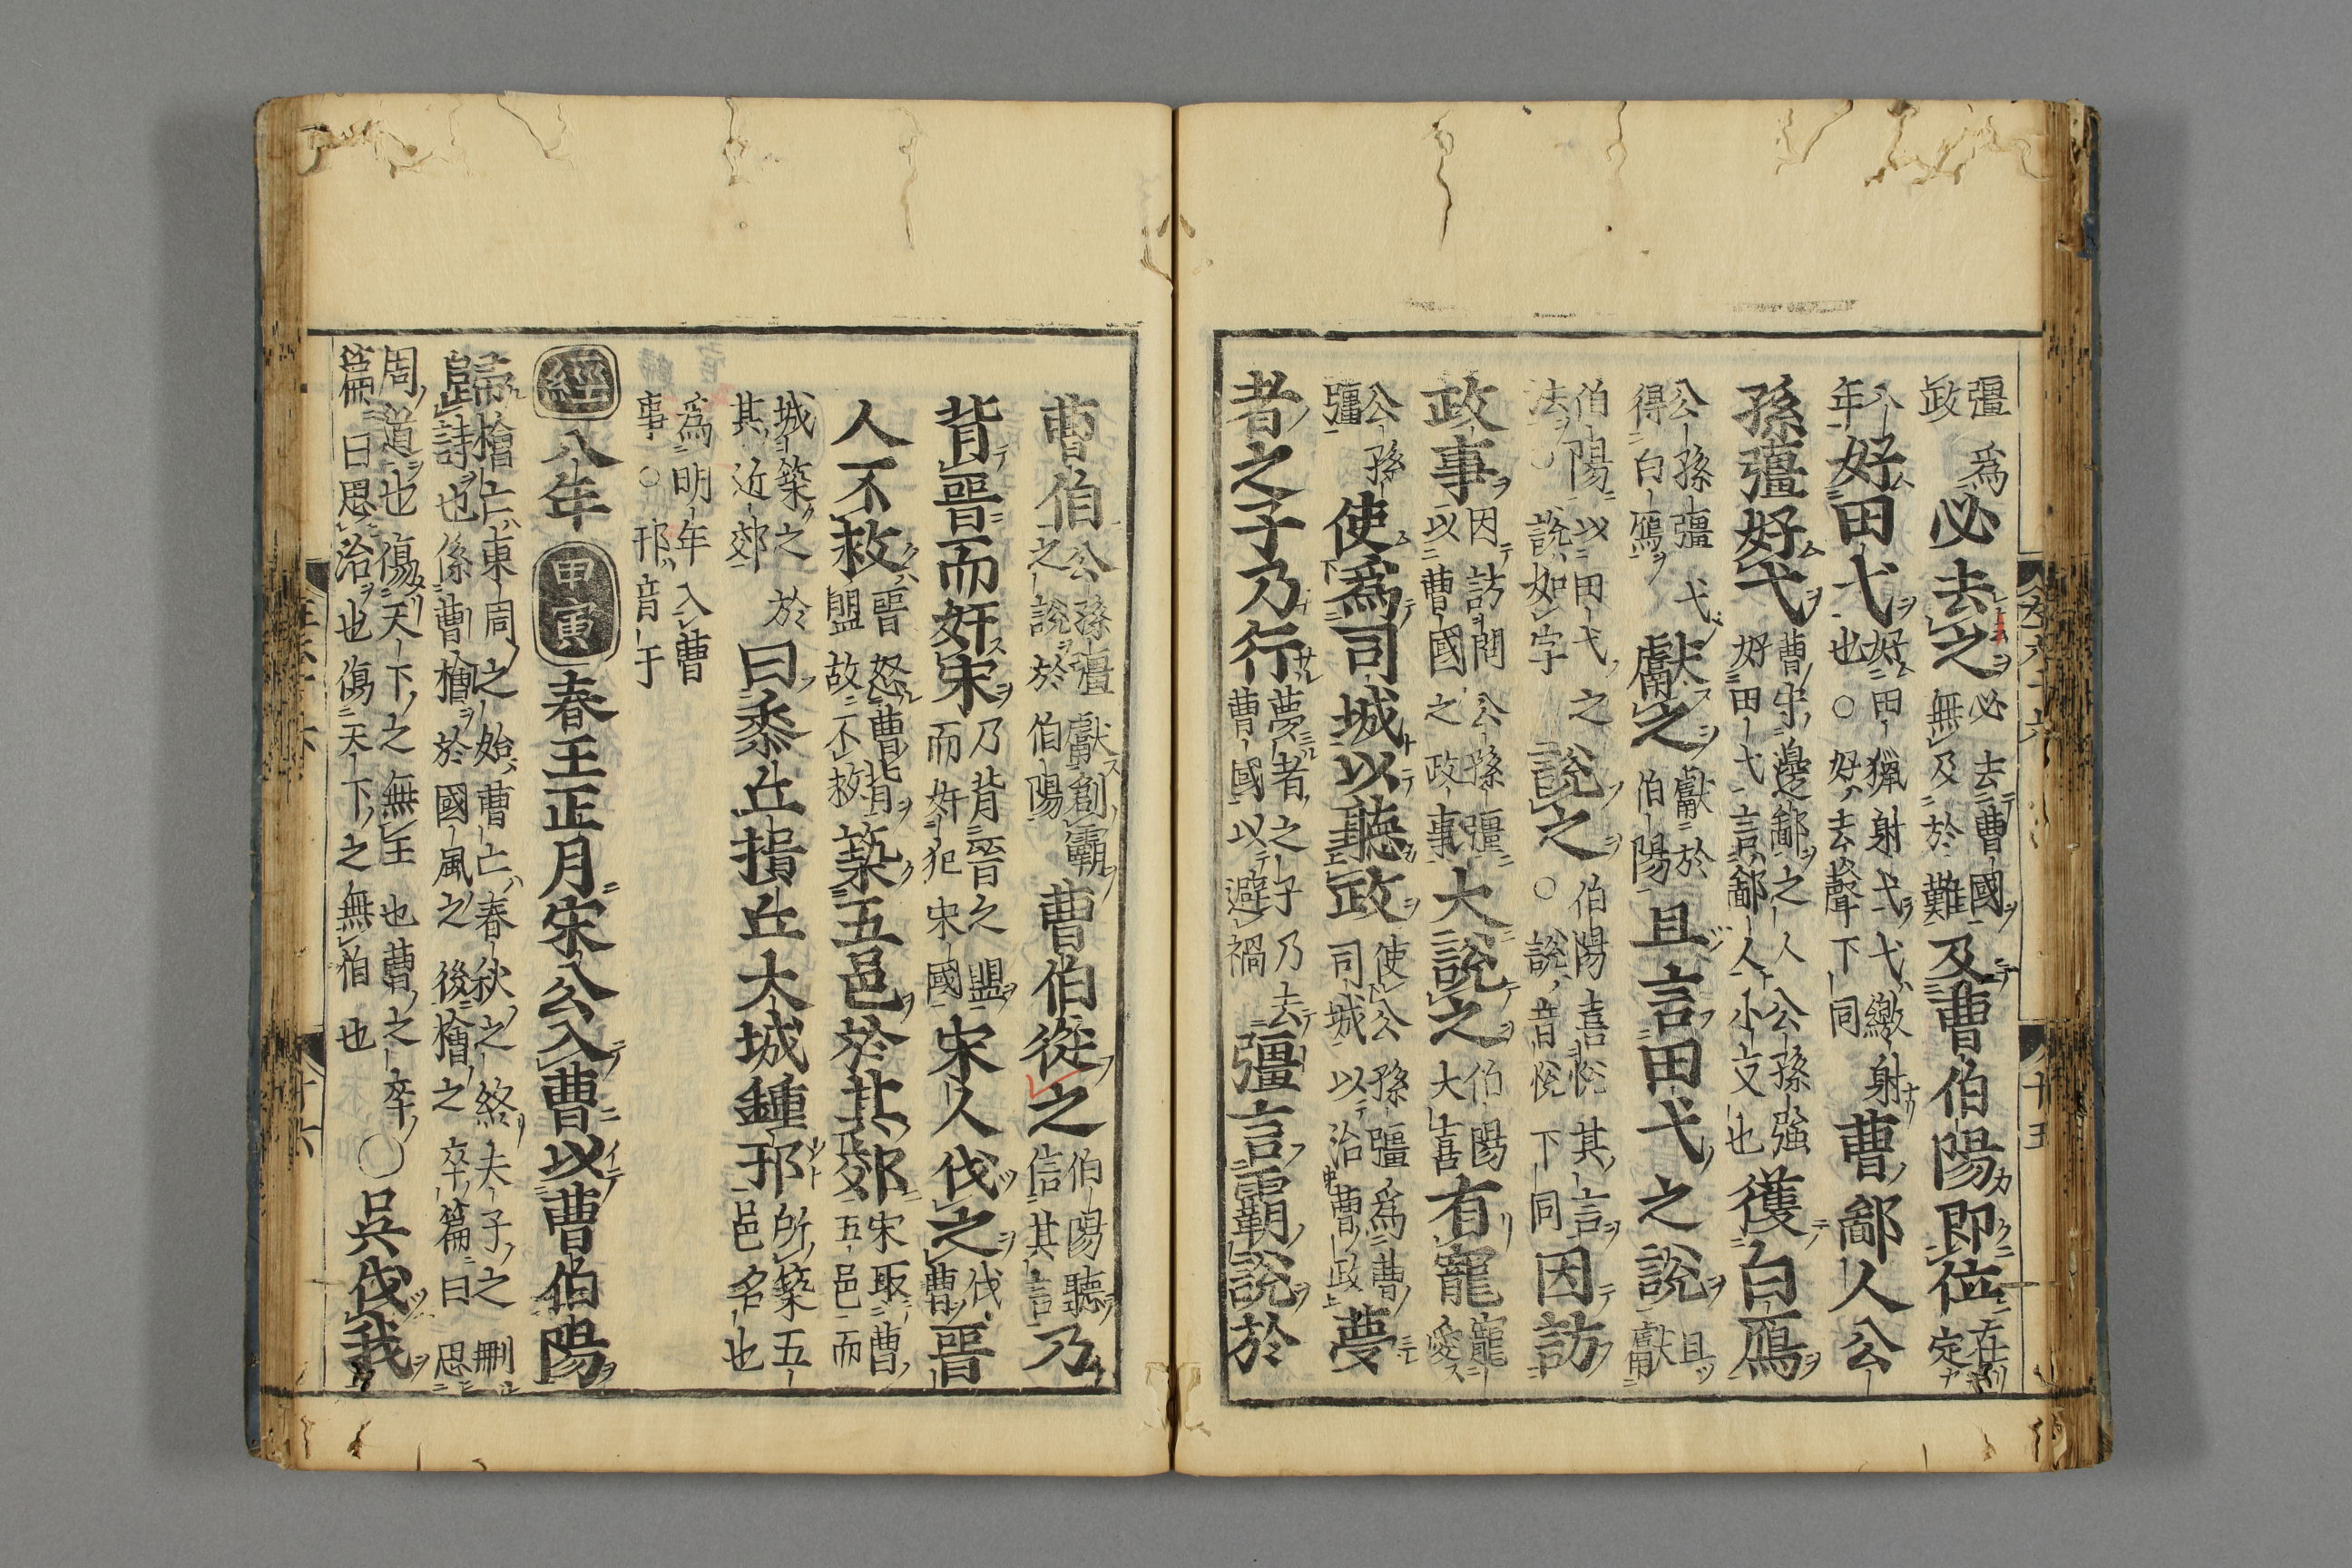 彊爲政必去之必去曹國無及於難及曹伯陽即位在定
八年好田弋好田獵射弋弋繳射也○好去聲下同曹鄙人公
孫彊好弋曹守邊鄙之人公孫強好田弋言鄙人小攴也獲白鴈
公孫彊弋得白鴈獻之獻於伯陽且言田弋之說且獻
伯陽以田弋之法○說如字說之伯陽喜悅其言○說音悅下同因訪
政事因訪問以曹國之政事公孫彊大說之伯陽大喜有寵寵愛
公孫彊使爲司城以聽政使公孫彊爲曹司城以治曹政夢
者之子乃行夢者之子乃去曹國以避禍彊言霸說於
曹伯公孫彊獻創霸之說於伯陽曹伯從之伯陽聽信其言乃
背晉而奸宋乃背晉之盟而奸犯宋國宋人伐之伐曹晉
人不救晉怒曹背盟故不救築五邑於其郊宋取曹五邑而
城築之於其近郊曰黍丘揖丘大城鍾邘所築五邑名也
爲明年入曹事○邘音于
經八年甲寅春王正月宋公入曹以曹伯陽
歸檜亡東周之始曹亡春秋之終夫子之刪詩也係曹檜於國風之後檜之卒篇曰思
周道也傷天下之無王也曹之卒篇曰思治也傷天下之無伯也○吳伐我
十五
十六